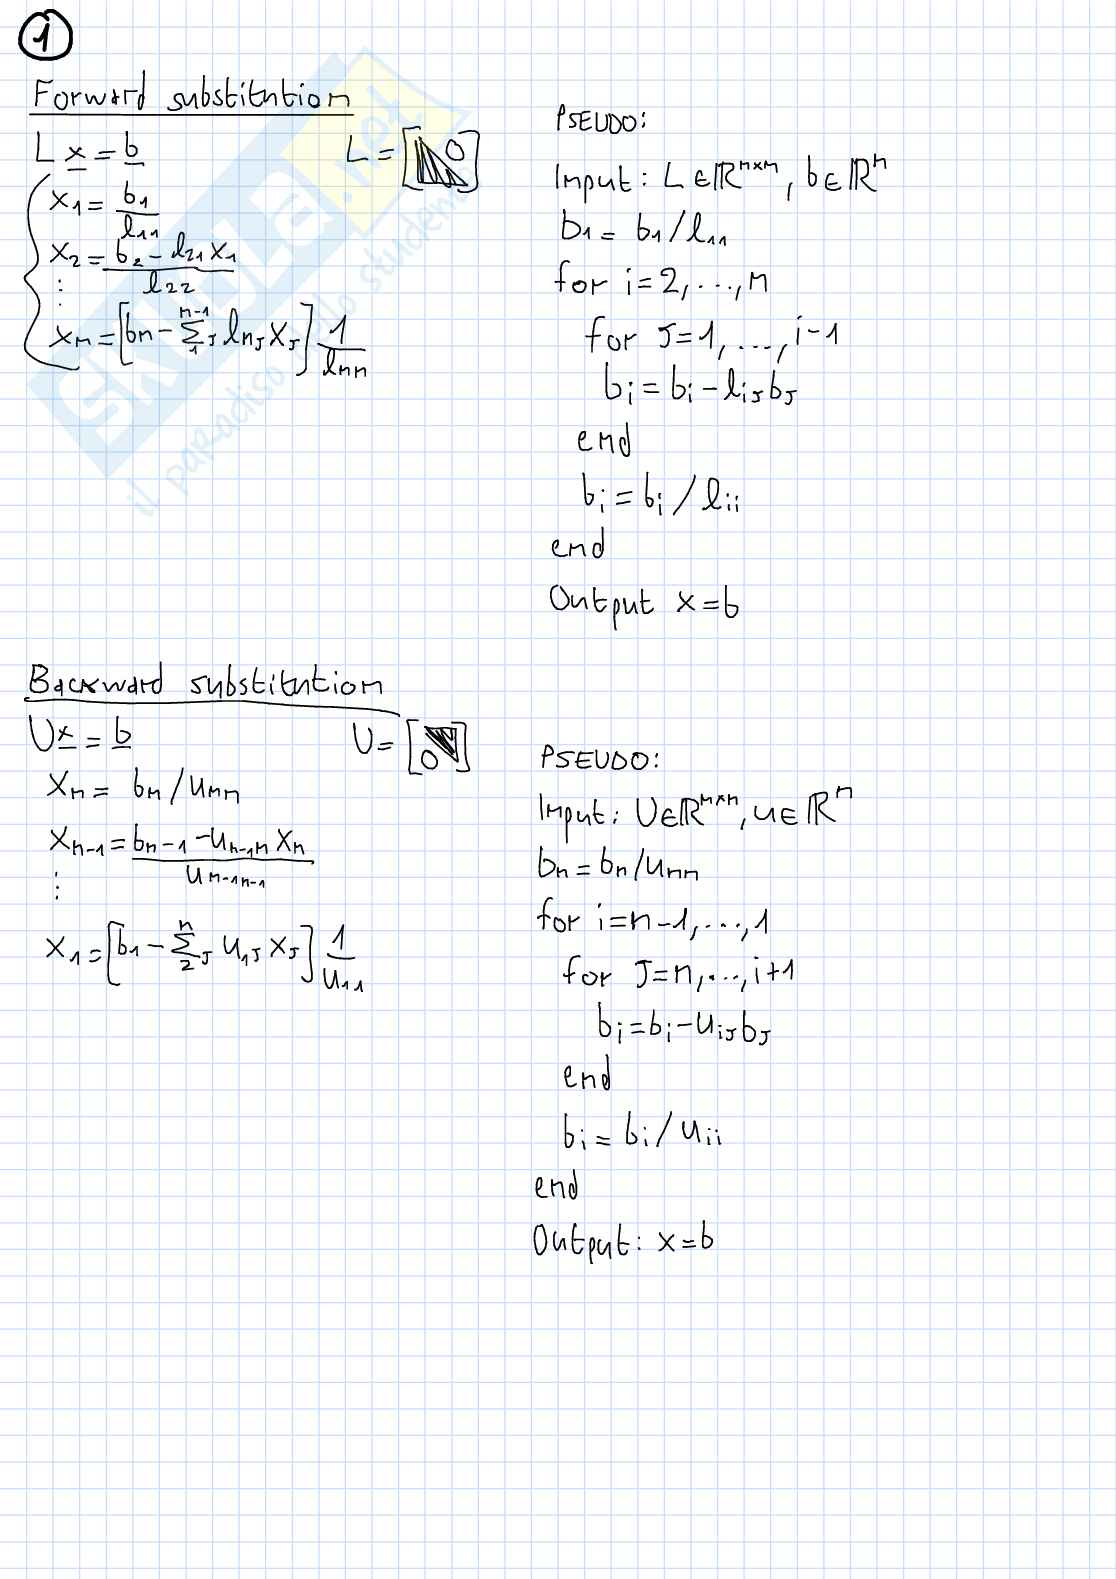 1
Forward substitution
L x = b L = [ 0 ]
x₁ = b₁ / l₁₁
x₂ = b₂ - l₂₁ x₁ / l₂₂
⋮
xₙ = [bₙ - Σ₁ʲⁿ⁻¹ lₙⱼ xⱼ] 1 / lₙₙ
PSEUDO:
Input: L ∈ ℝⁿˣⁿ, b ∈ ℝⁿ
b₁ = b₁ / l₁₁
for i = 2, ..., n
for J = 1, ..., i-1
bᵢ = bᵢ - lᵢⱼ bⱼ
end
bᵢ = bᵢ / lᵢᵢ
end
Output x = b
Backward substitution
U x = b U = [ 0 ]
xₙ = bₙ / uₙₙ
xₙ₋₁ = bₙ₋₁ - uₙ₋₁ₙ xₙ / uₙ₋₁ₙ₋₁
⋮
x₁ = [b₁ - Σ₂ʲⁿ u₁ⱼ xⱼ] 1 / u₁₁
PSEUDO:
Input: U ∈ ℝⁿˣⁿ, u ∈ ℝⁿ
bₙ = bₙ / uₙₙ
for i = n-1, ..., 1
for J = n, ..., i+1
bᵢ = bᵢ - uᵢⱼ bⱼ
end
bᵢ = bᵢ / uᵢᵢ
end
Output: x = b
SKUOLA.net
il paradiso dello studente